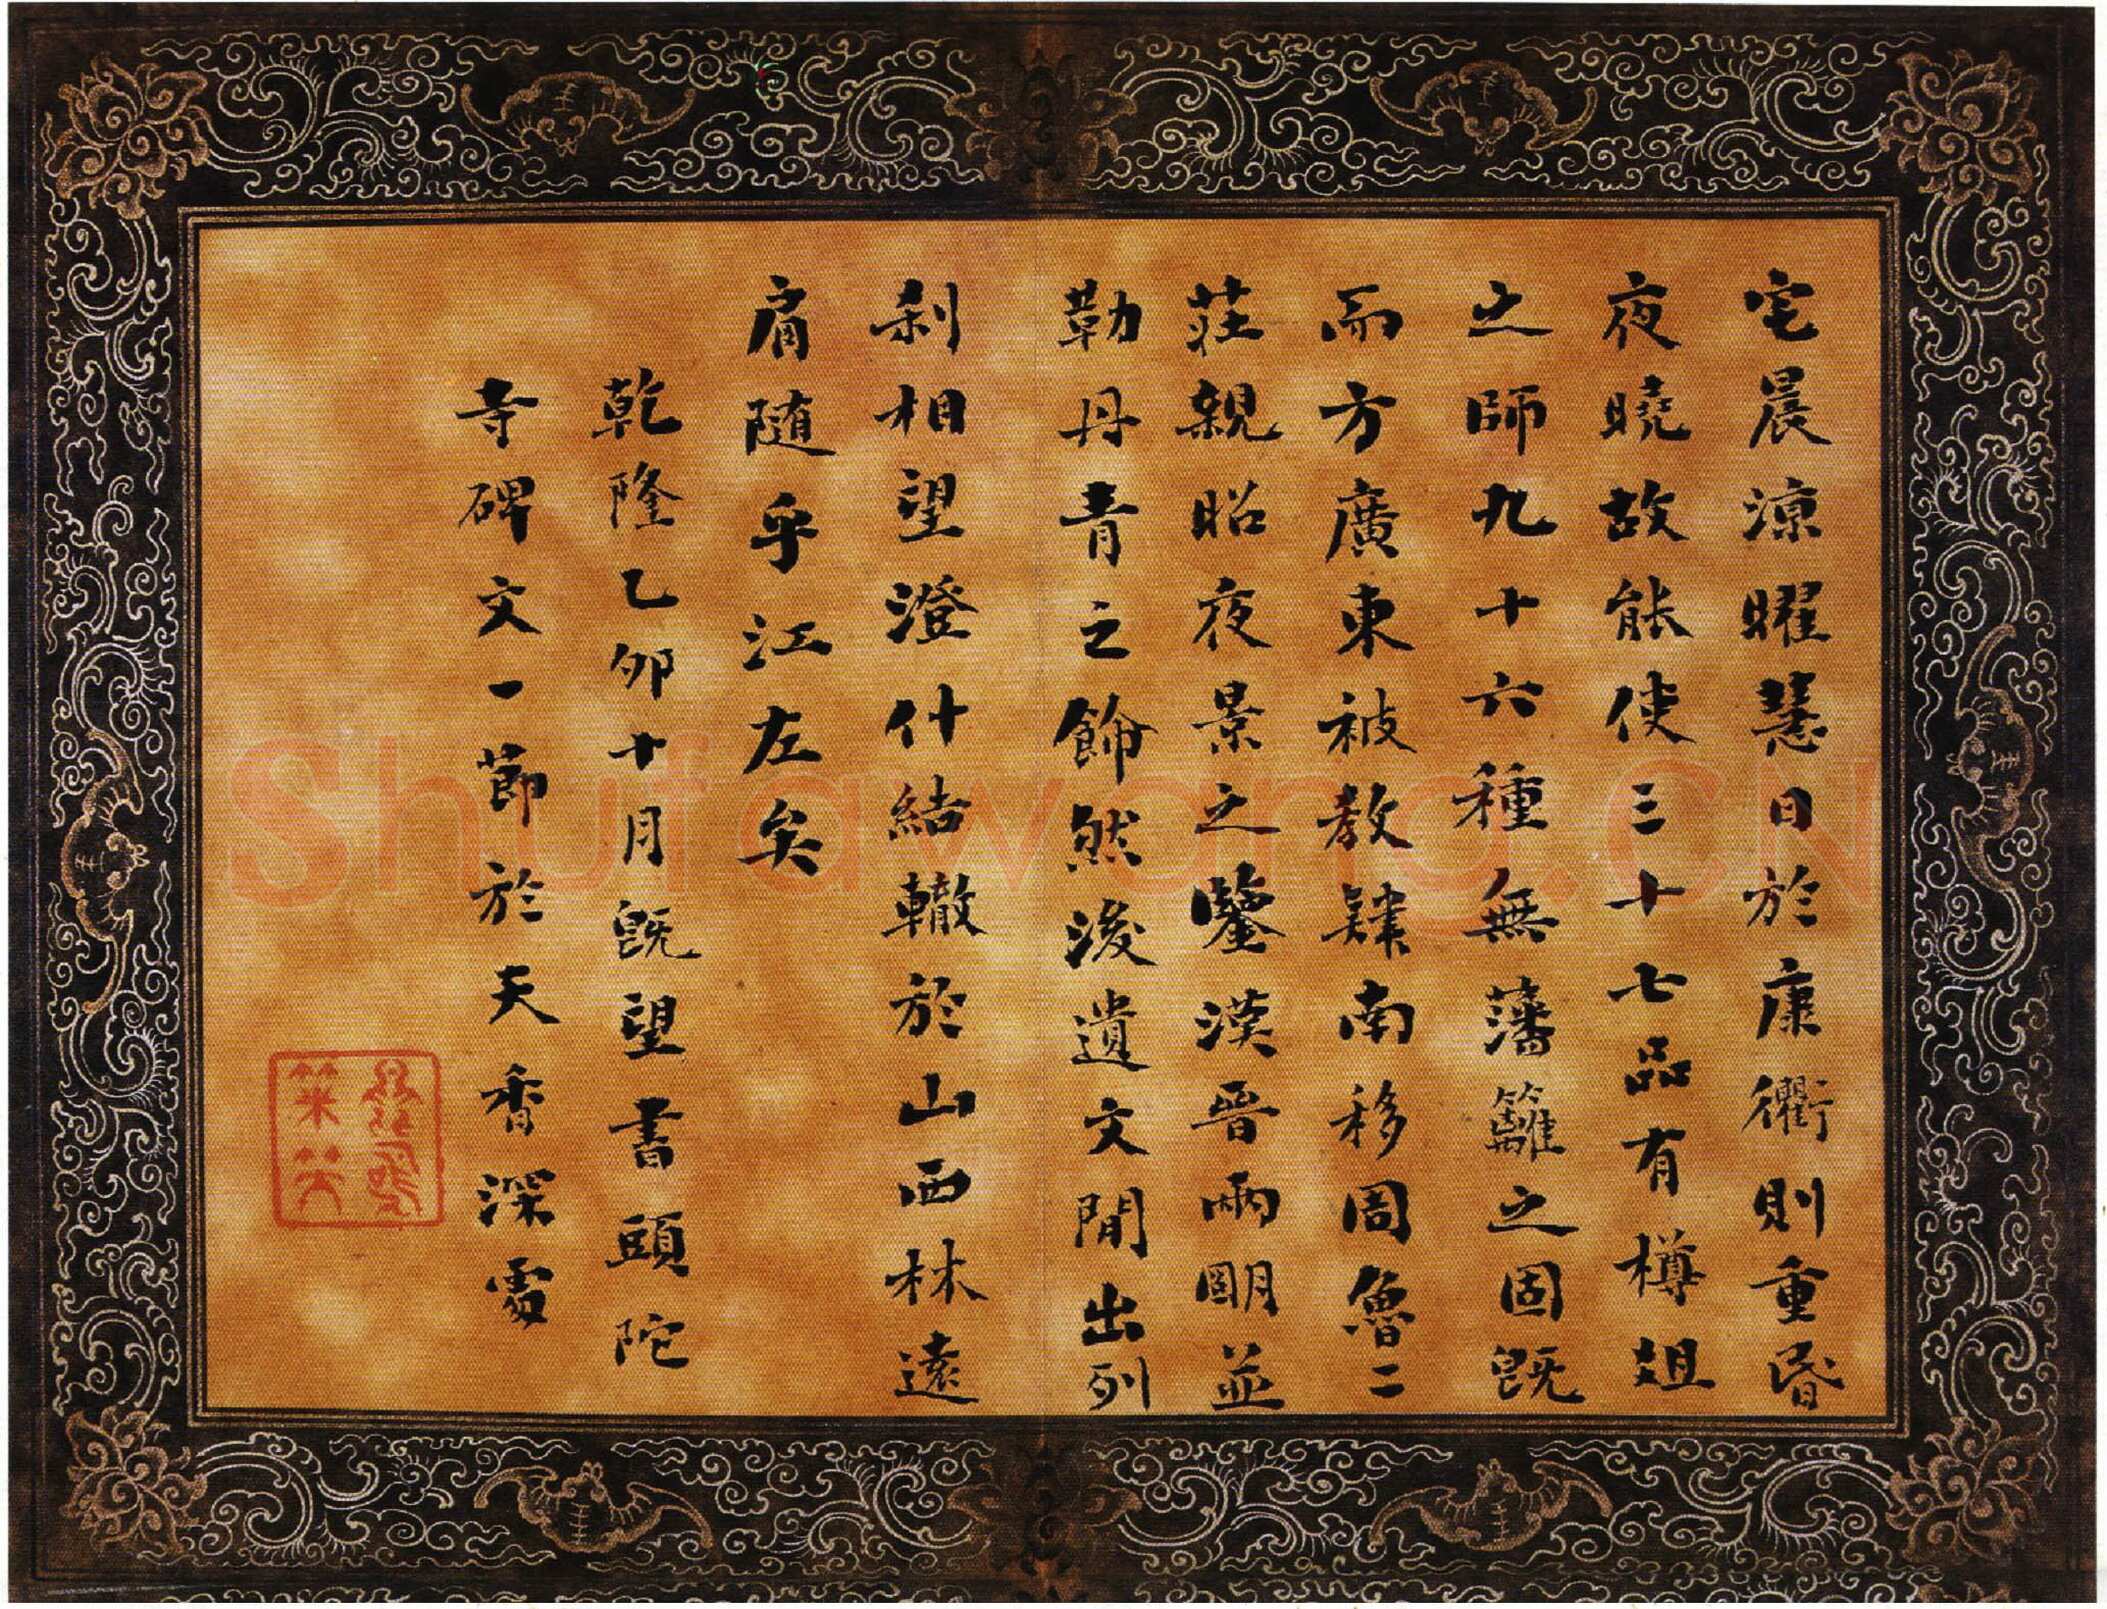 宅晨涼曜慧日於康衢則重昏
夜曉故能使三十七品有樽俎
之師九十六種無藩籬之固既
而方廣東被教肄南移周魯二
莊親昭夜景之鑒漢晉兩明並
勒丹青之飾然後遺文閒出列
刹相望澄什結轍於山西林遠
肩隨乎江左矣
乾隆乙卯十月既望書頭陀
寺碑文一節於天香深處
Shufawang.CN